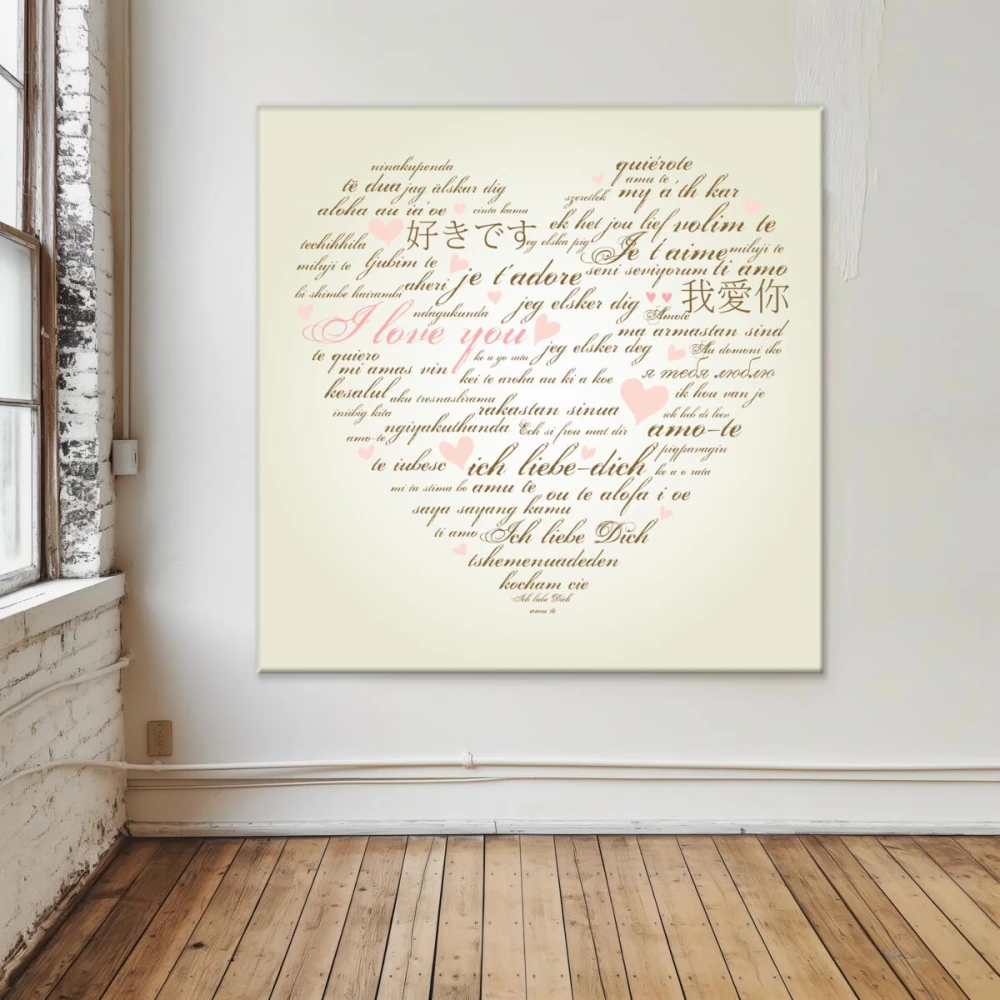 ninakupenda quiérote
të dua jag älskar dig amu te
szeretlek my a'th kar
aloha au ia'oe cinta kamu
ek het jou lief volim te
techihhila 好きです eg elska pig Je t'aime miluji te
miluji te ljubim te seni seviyorum ti amo
aheri je t'adore
bi shimbe hairambi jeg elsker dig 我愛你
ndagukunda Amote
I love you ma armastan sind
te quiero ke a go rata jeg elsker deg Au domoni iko
mi amas vin kei te aroha au ki a koe я тебя люблю
kesalul aku tresnasliramu ik hou van je
iniibig kita rakastan sinua ick heb di leev
ngiyakuthanda Ech si frou mat dir amo-te
amo-te pigpavagin
te iubesc ich liebe-dich ke a o rata
mi ta stima bo amu te ou te alofa i oe
saya sayang kamu
ti amo Ich liebe Dich
tshemenuadeden
kocham cie
Ich liebe Dich
amu te